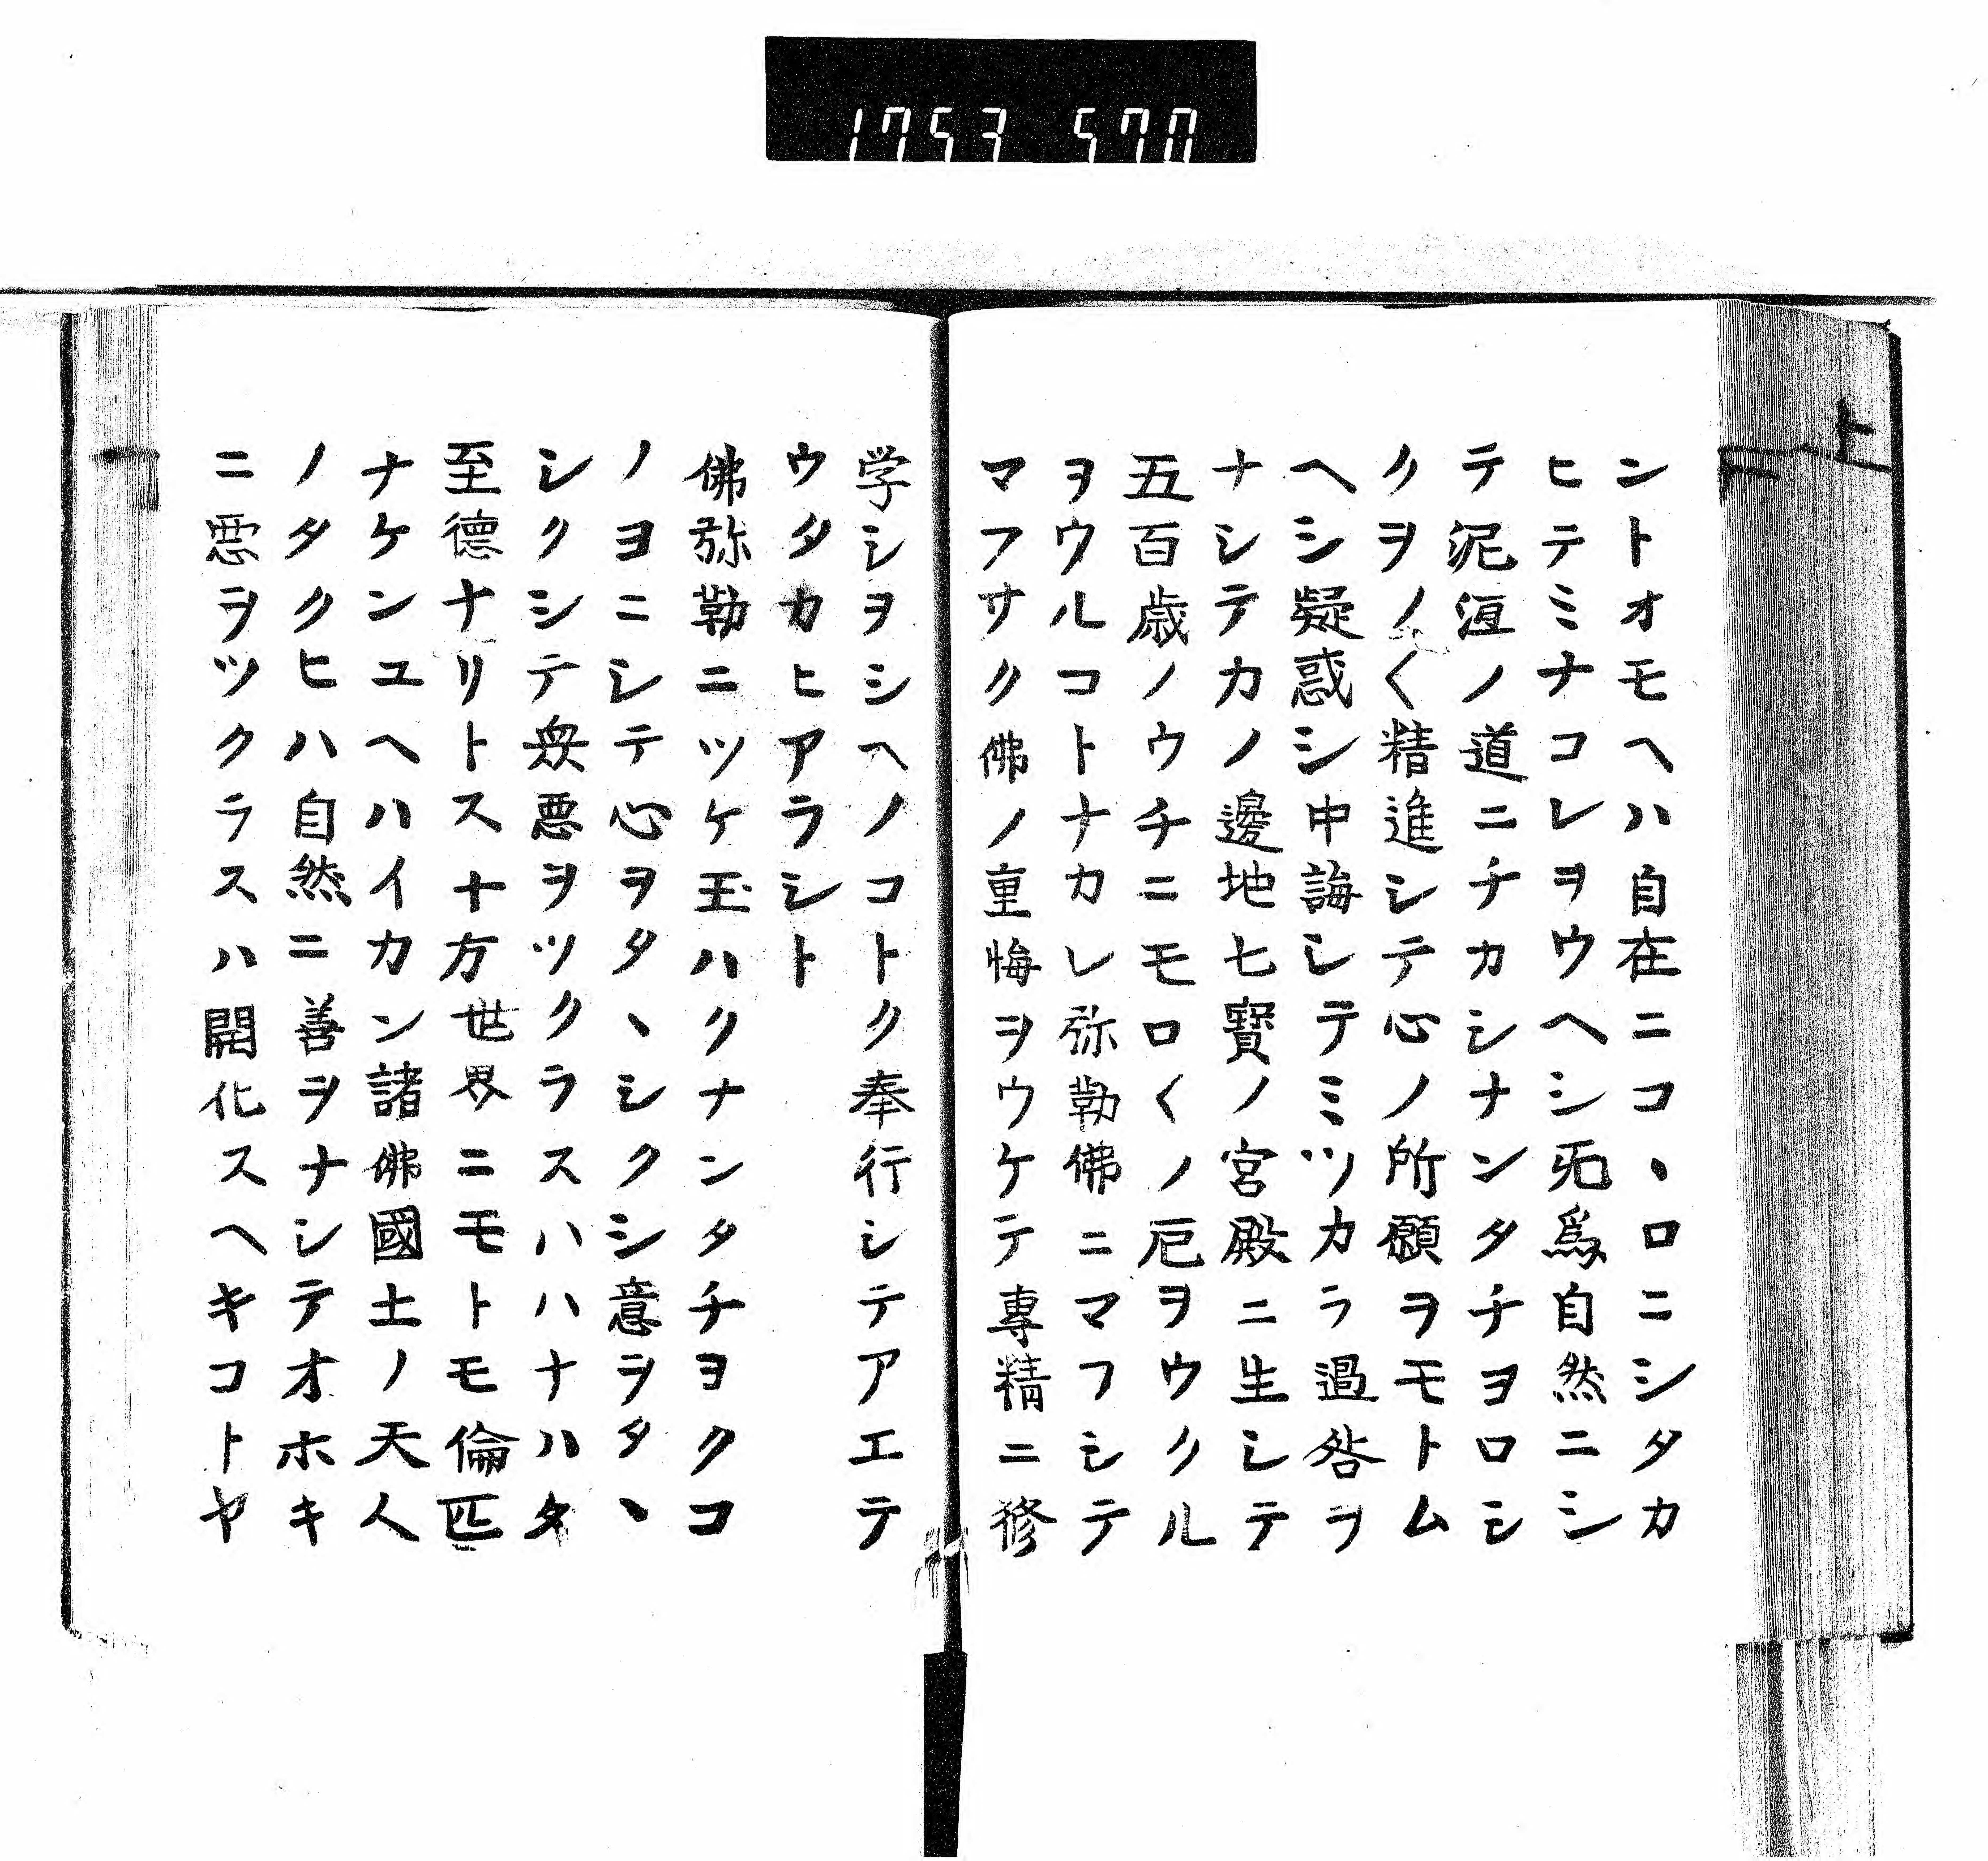 1753 570
上
ントオモヘハ自在ニコヽロニシタカ
ヒテミナコレヲウヘシ无爲自然ニシ
テ泥洹ノ道ニチカシナンタチヨロシ
クヲノ〱精進シテ心ノ所願ヲモトム
ヘシ疑惑シ中誨シテミツカラ過咎ヲ
ナシテカノ邊地七寳ノ宮殿ニ生シテ
五百歳ノウチニモロ〱ノ厄ヲウクル
ヲウルコトナカレ弥勒佛ニマフシテ
マフサク佛ノ重悔ヲウケテ専精ニ修
学シヲシヘノコトク奉行シテアエテ
ウタカヒアラシト
佛弥勒ニツケ玉ハクナンタチヨクコ
ノヨニシテ心ヲタヽシクシ意ヲタヽ
シクシテ衆悪ヲツクラスハハナハタ
至德ナリトス十方世界ニモトモ倫匹
ナケンユヘハイカン諸佛國土ノ天人
ノタクヒハ自然ニ善ヲナシテオホキ
ニ悪ヲツクラスハ開化スヘキコトヤ